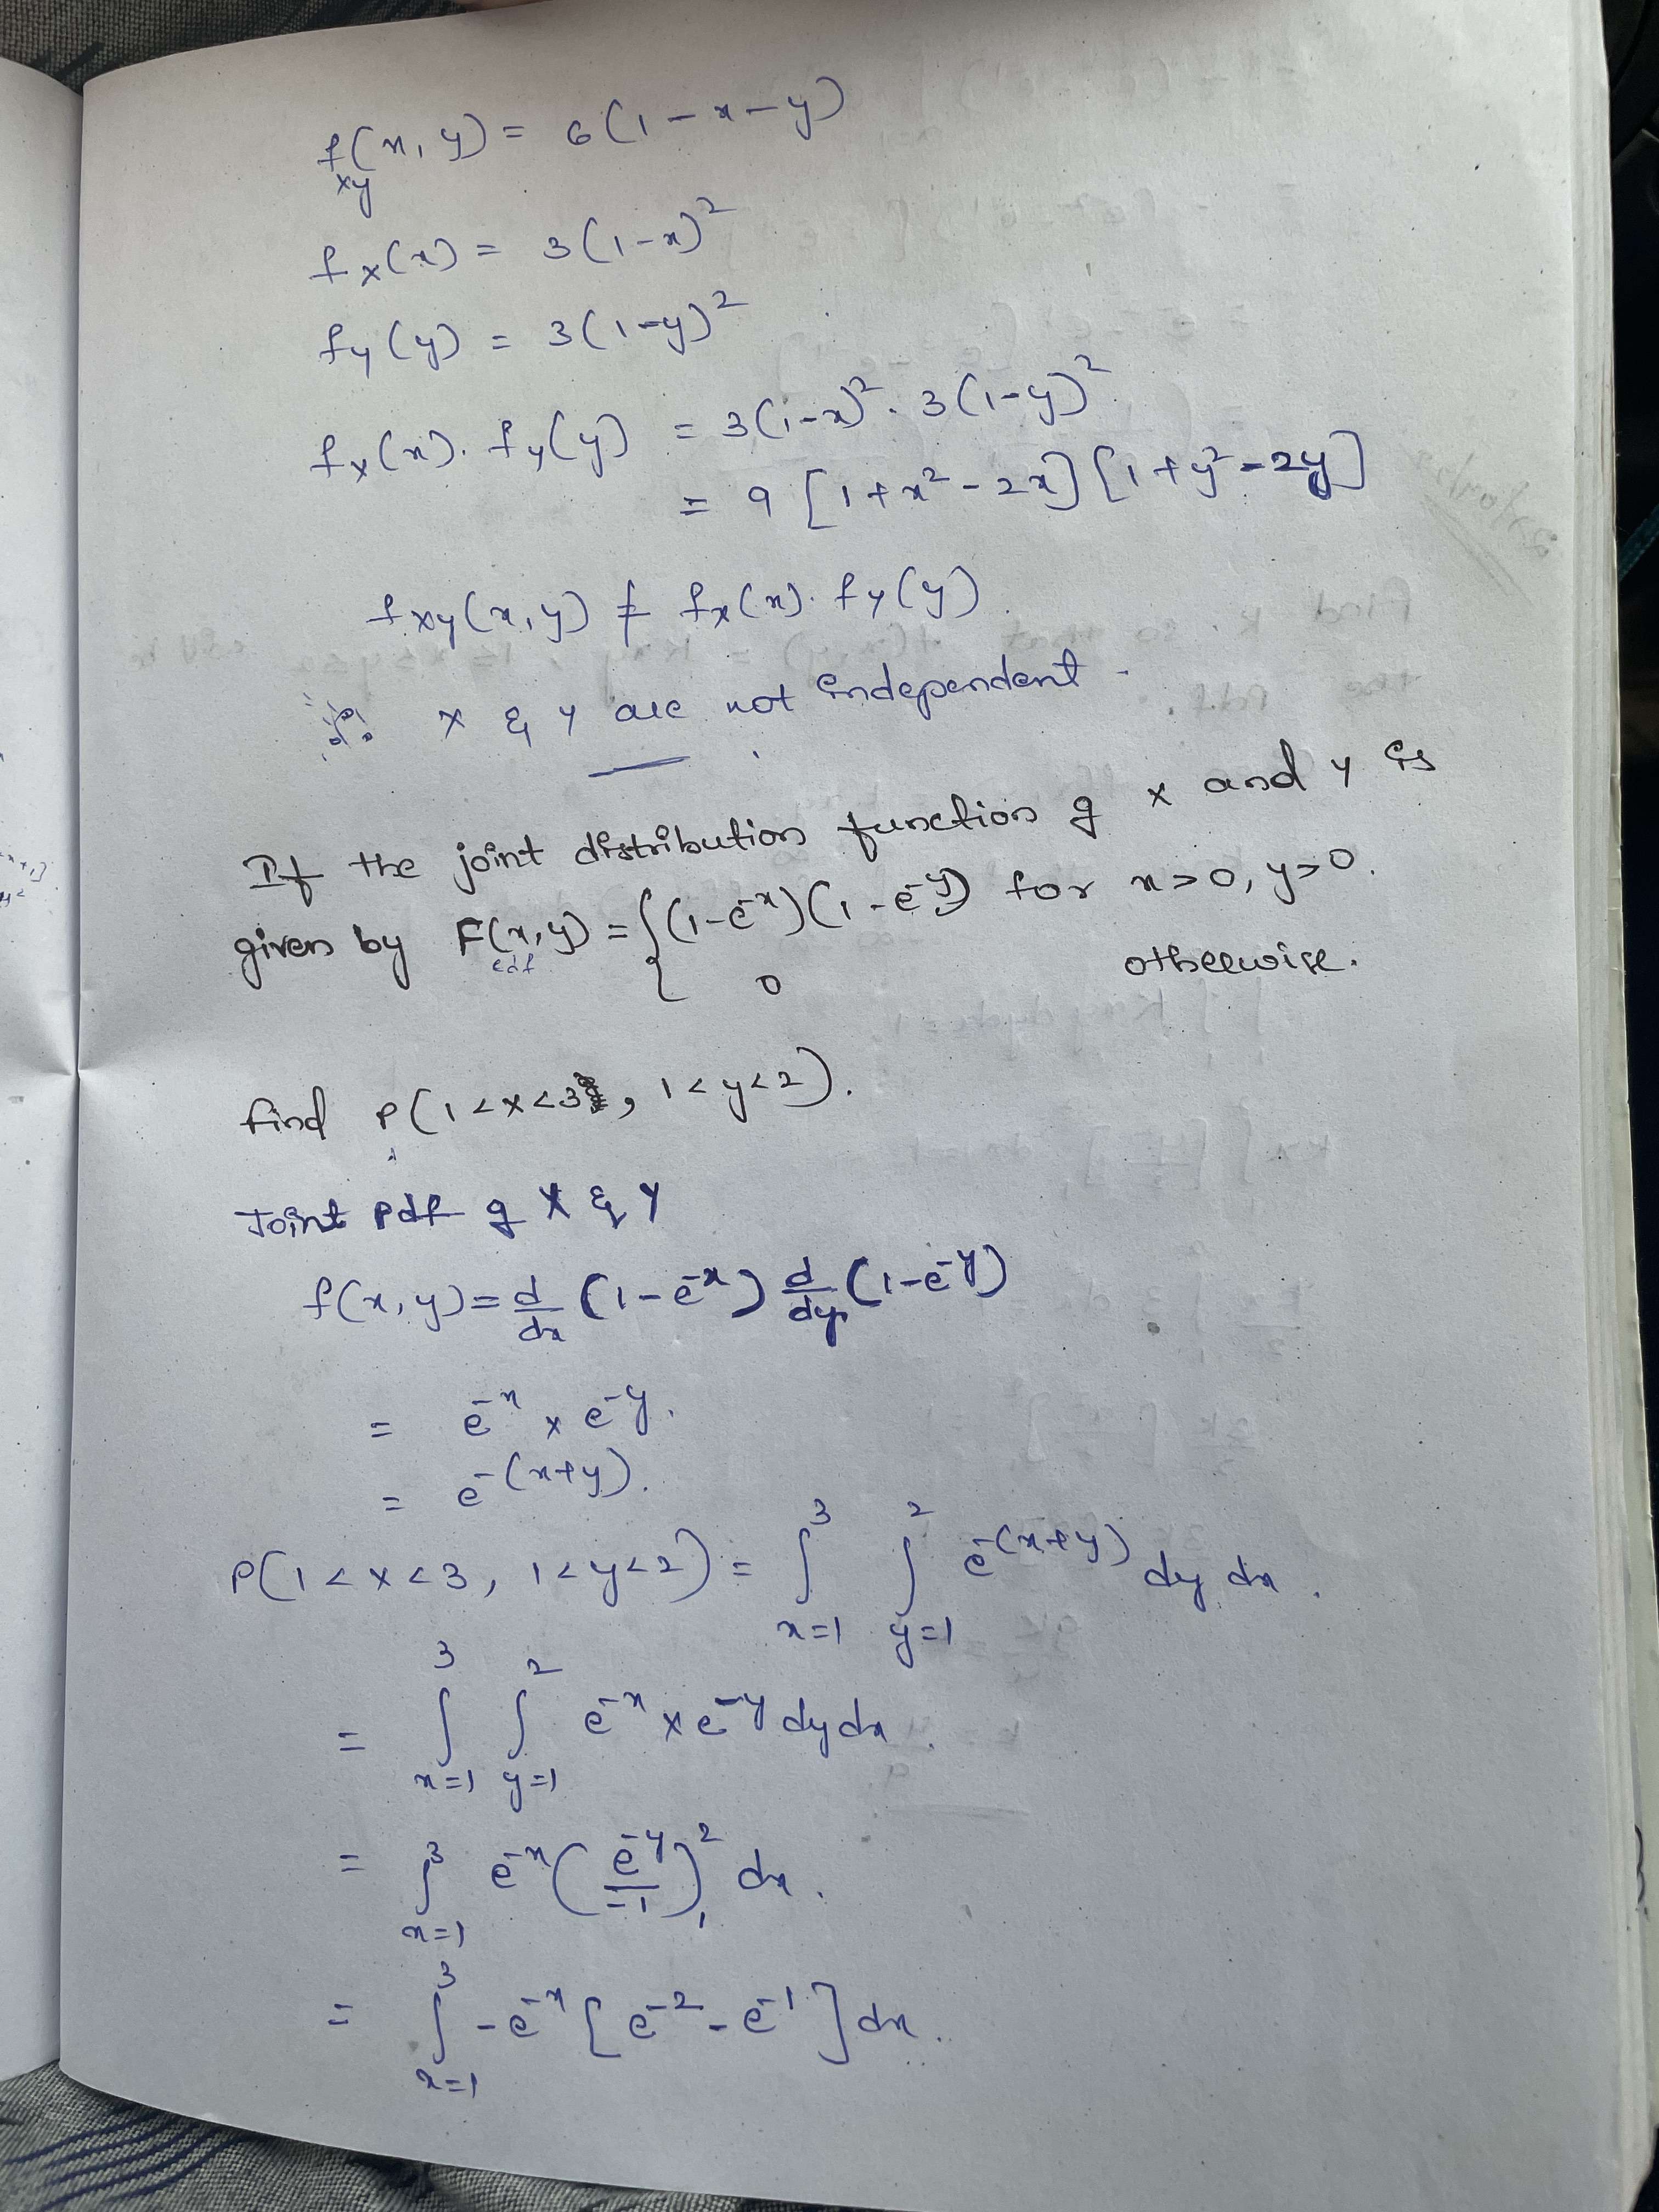 f(x, y) = 6(1 - x - y)
xy
fx(x) = 3(1-x)²
fy(y) = 3(1-y)²
fx(x). fy(y) = 3(1-x)². 3(1-y)²
= 9 [1 + x² - 2x] [1 + y² - 2y]
fxy(x, y) ≠ fx(x). fy(y).
∴ X & Y are not independent.
If the joint distribution function of X and Y is
given by F(x, y) = { (1-e⁻ˣ)(1-e⁻ʸ) for x>0, y>0.
cdf
0 otherwise.
find P(1<x<3, 1<y<2).
Joint Pdf of X & Y
f(x, y) = d/dx (1-e⁻ˣ) d/dy (1-e⁻ʸ)
= e⁻ˣ × e⁻ʸ.
= e^-(x+y).
P(1<x<3, 1<y<2) = ∫_{x=1}^{3} ∫_{y=1}^{2} e^-(x+y) dy dx.
= ∫_{x=1}^{3} ∫_{y=1}^{2} e⁻ˣ × e⁻ʸ dy dx.
= ∫_{x=1}^{3} e⁻ˣ (e⁻ʸ/-1)₁² dx.
= ∫_{x=1}^{3} -e⁻ˣ [e⁻² - e⁻¹] dx.